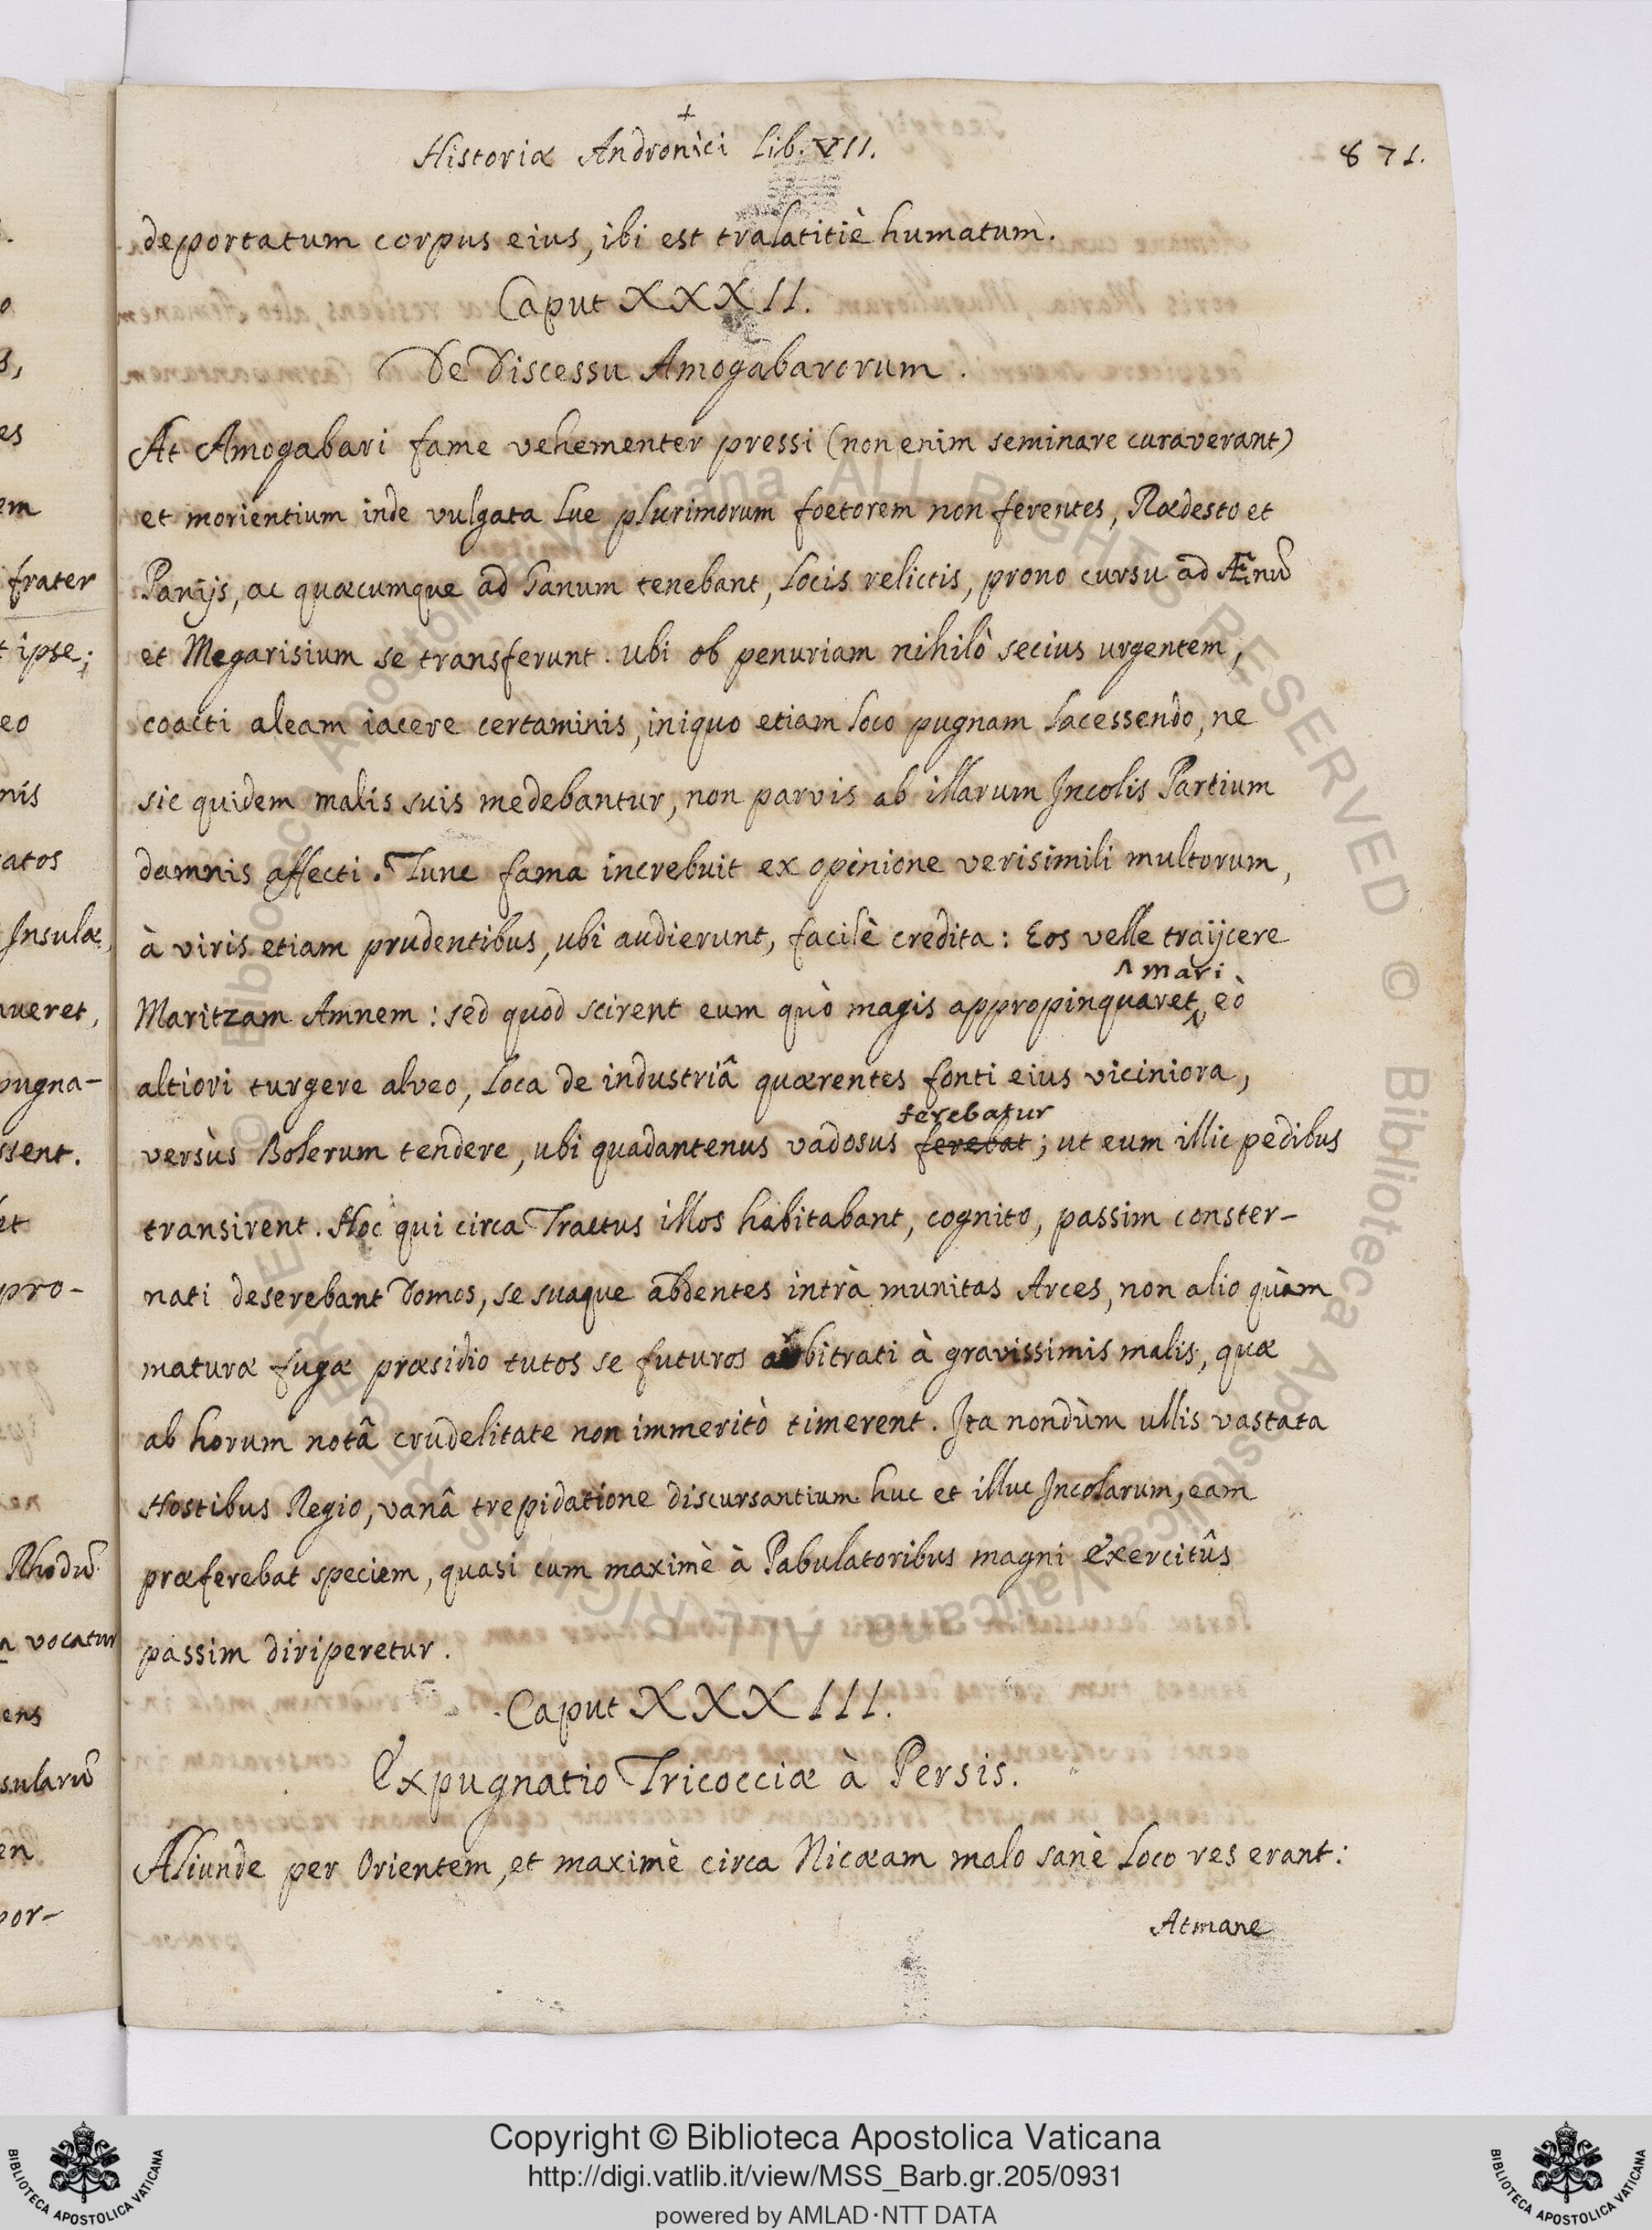 Historiæ Andronici Lib. VII. 871.
deportatum corpus eius, ibi est tralatitiè humatum.
Caput XXXII.
De Discessu Amogabarorum.
At Amogabari fame vehementer pressi (non enim seminare curaverant)
et morientium inde vulgata Lue plurimorum foetorem non ferentes, Rædesto et
Panijs, ac quæcumque ad Ganum tenebant, Locis relictis, prono cursu ad Ænũ
et Megarisium se transferunt. Ubi ob penuriam nihilò secius urgentem,
coacti aleam iacere certaminis, iniquo etiam loco pugnam lacessendo, ne
sic quidem malis suis medebantur, non parvis ab illarum Incolis Partium
damnis affecti. Tunc fama increbuit ex opinione verisimili multorum,
à viris etiam prudentibus, ubi audierunt, facilè credita: Eos velle traijcere
^ mari
Maritzam Amnem: sed quod scirent eum quò magis appropinquaret, eò
altiori turgere alveo, Loca de industriâ quærentes fonti eius viciniora,
ferebatur
versùs Bolerum tendere, ubi quadantenus vadosus ferebat; ut eum illic pedibus
transirent. Hoc qui circa Tractus illos habitabant, cognito, passim conster-
nati deserebant Domos, se suaque abdentes intrà munitas Arces, non alio quàm
maturæ fugæ præsidio tutos se futuros arbitrati à gravissimis malis, quæ
ab horum notâ crudelitate non immeritò timerent. Ita nondùm ullis vastata
Hostibus Regio, vanâ trepidatione discursantium huc et illuc Incolarum, eam
præferebat speciem, quasi cum maximè à Pabulatoribus magni Exercitûs
passim diriperetur.
Caput XXXIII.
Expugnatio Tricocciæ à Persis.
Aliunde per Orientem, et maximè circa Nicæam malo sanè Loco res erant:
Atmane
frater
ipse;
Insulæ,
pugna-
Rhodũ
vocatur
Copyright © Biblioteca Apostolica Vaticana
http://digi.vatlib.it/view/MSS_Barb.gr.205/0931
powered by AMLAD·NTT DATA
BIBLIOTECA APOSTOLICA VATICANA
BIBLIOTECA APOSTOLICA VATICANA